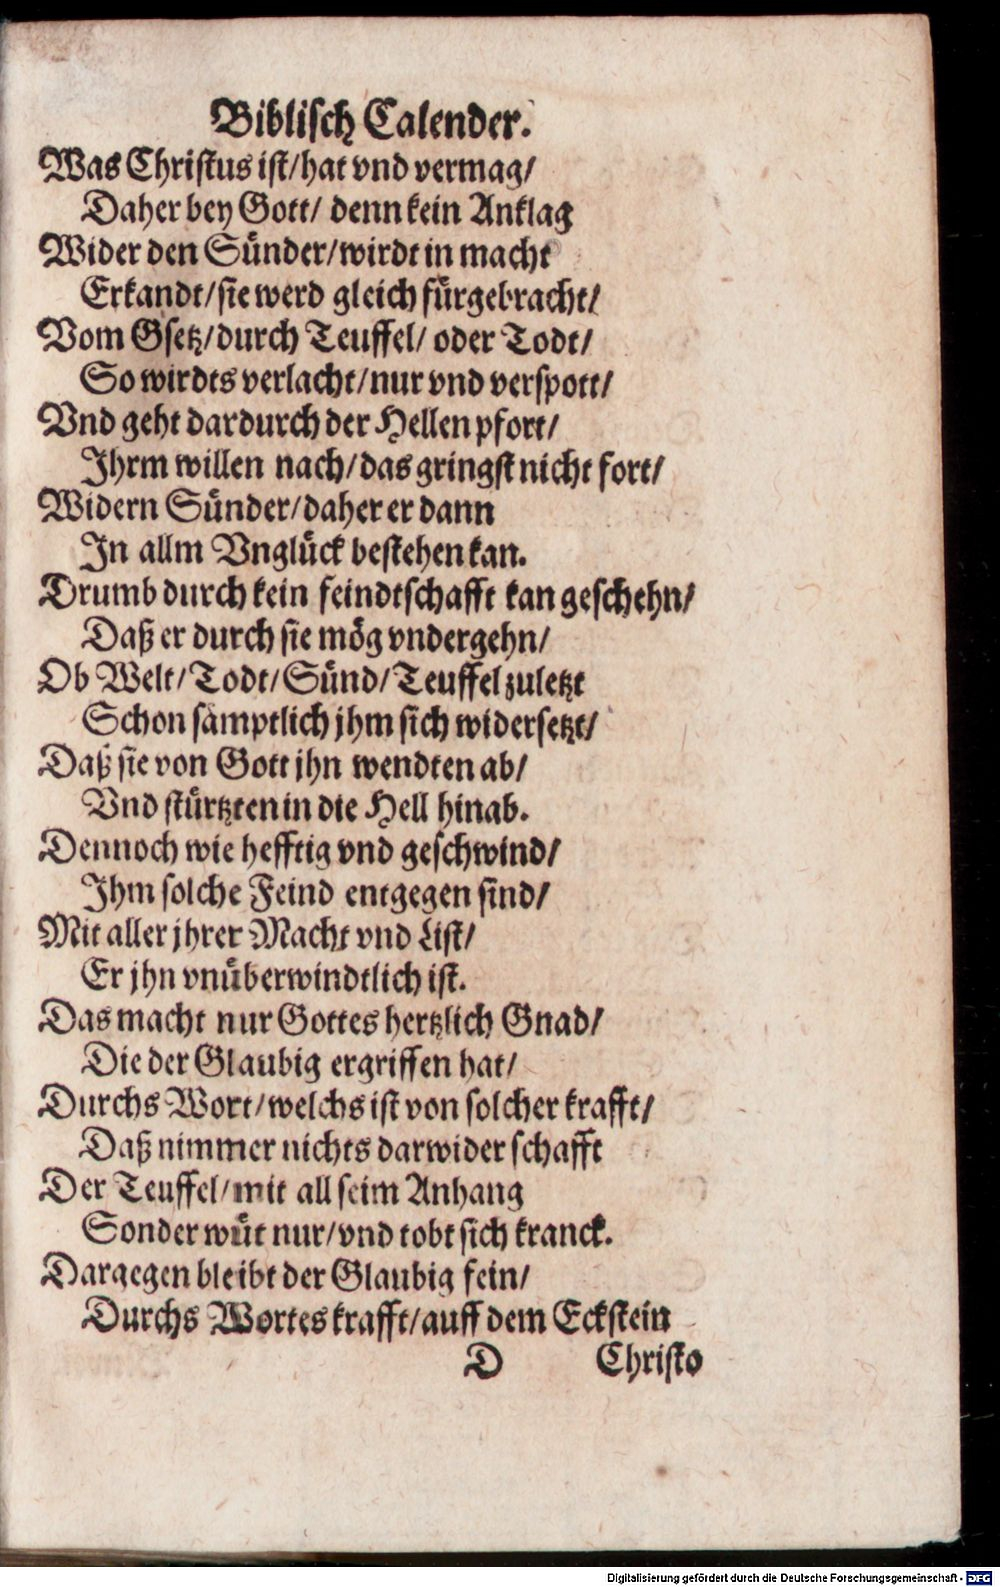 Biblisch Calender.
Was Christus ist/hat vnd vermag/
Daher bey Gott/ denn kein Anklag
Wider den Sünder/wirdt in macht
Erkandt/sie werd gleich fürgebracht/
Vom Gsetz/durch Teuffel/ oder Todt/
So wirdts verlacht/nur vnd verspott/
Vnd geht dardurch der Hellen pfort/
Ihrm willen nach/das gringst nicht fort/
Widern Sünder/daher er dann
In allm Vnglück bestehen kan.
Drumb durch kein feindtschafft kan geschehn/
Daß er durch sie mög vndergehn/
Ob Welt/Todt/Sünd/Teuffel zuletzt
Schon sämptlich jhm sich widersetzt/
Daß sie von Gott jhn wendten ab/
Vnd stürtzten in die Hell hinab.
Dennoch wie hefftig vnd geschwind/
Ihm solche Feind entgegen sind/
Mit aller jhrer Macht vnd List/
Er jhn vnüberwindtlich ist.
Das macht nur Gottes hertzlich Gnad/
Die der Glaubig ergriffen hat/
Durchs Wort/welchs ist von solcher krafft/
Daß nimmer nichts darwider schafft
Der Teuffel/mit all seim Anhang
Sonder wüt nur/vnd tobt sich kranck.
Dargegen bleibt der Glaubig fein/
Durchs Wortes krafft/auff dem Eckstein
D Christo
Digitalisierung gefördert durch die Deutsche Forschungsgemeinschaft - DFG